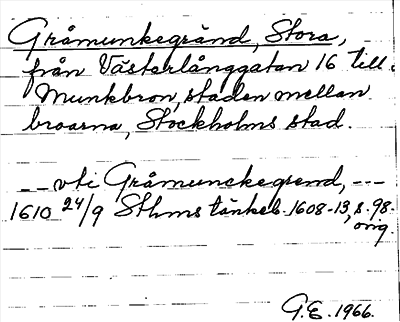 Gråmunkegränd, Stora,
från Västerlånggatan 16 till
Munkbron, staden mellan
broarna, Stockholms stad.
__ vti Gråmunckegrend, ---
1610 24/9 Sthms tänkeb. 1608-13, s. 98.
orig.
G.E. 1966.